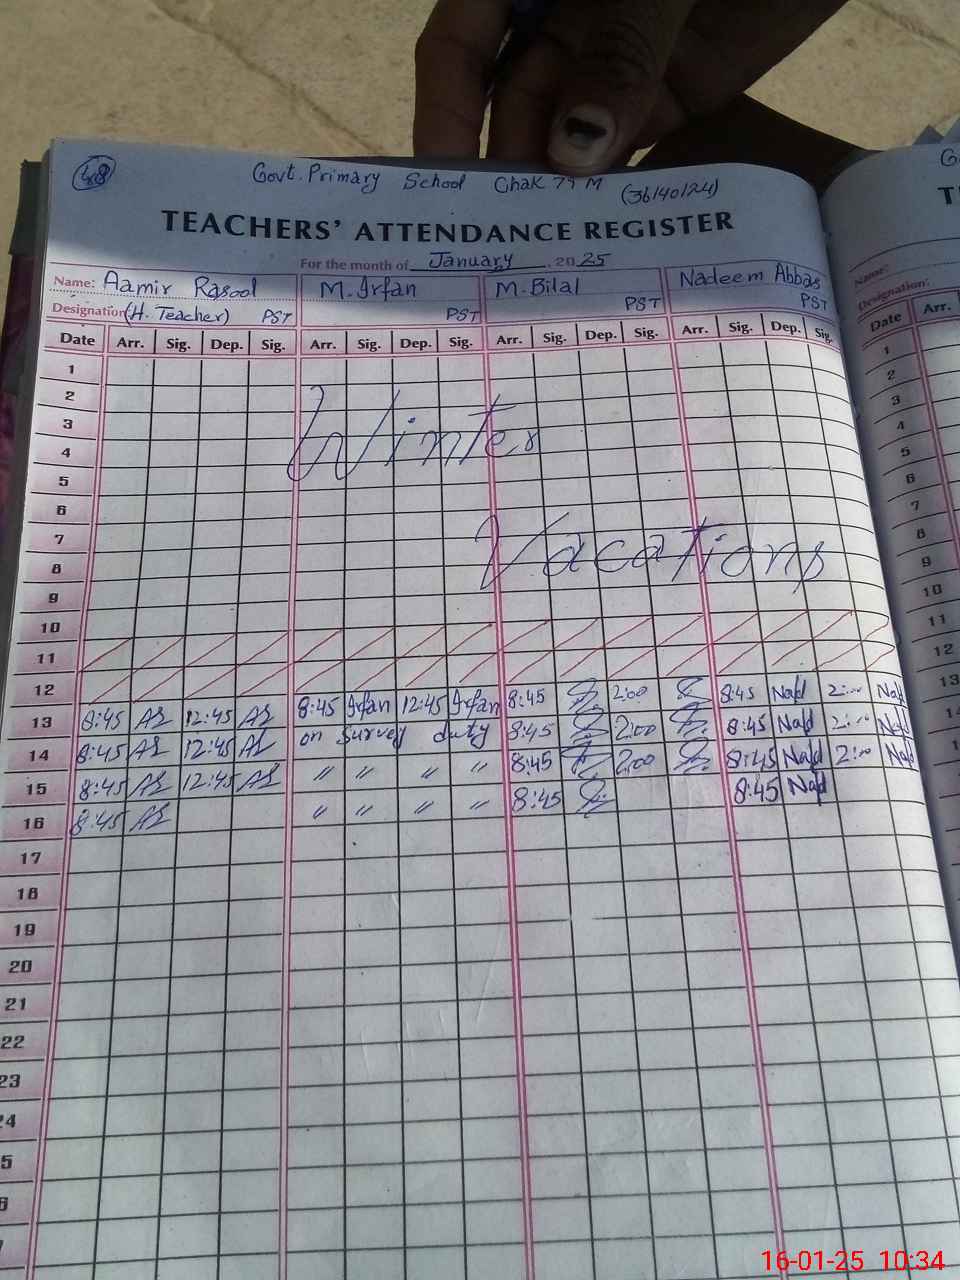 48
Govt. Primary School Chak 79 M (36140124)
TEACHERS' ATTENDANCE REGISTER
For the month of January , 2025
Name: Aamir Rasool M. Irfan M. Bilal Nadeem Abbas
Designation (H. Teacher) PST PST PST PST
Date Arr. Sig. Dep. Sig. Arr. Sig. Dep. Sig. Arr. Sig. Dep. Sig. Arr. Sig. Dep. Sig.
1
2
3
4
5
Winter
6
7
8
Vacations
9
10
11
12
13 8:45 AR 12:45 AR 8:45 Irfan 12:45 Irfan 8:45 2:00 8:45 Nad 2:00 Nad
14 8:45 AR 12:45 AR on survey duty 8:45 2:00 8:45 Nad 2:00 Nad
15 8:45 AR 12:45 AR " " " " 8:45 2:00 8:45 Nad 2:00 Nad
16 8:45 AR " " " " 8:45 8:45 Nad
17
18
19
20
21
22
23
24
Name:
Designation:
Date Arr.
1
2
3
4
5
6
7
8
9
10
11
12
13
16-01-25 10:34